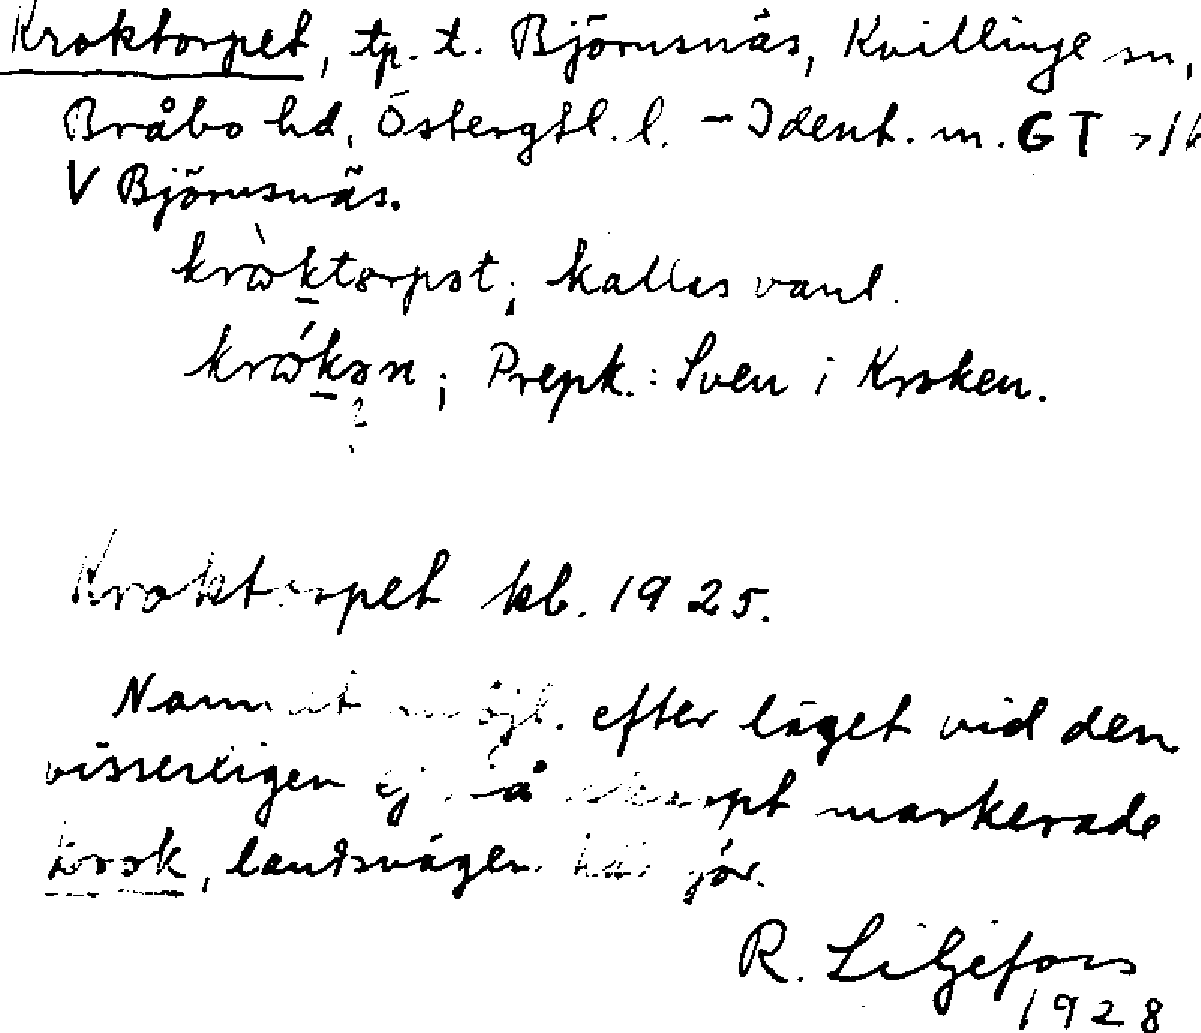 Kroktorpet, tp. t. Björnsnäs, Kvillinge sn,
Bråbo hd, Östergtl. l. – Ident. m. GT
V Björnsnäs.
kròktorpət; kallas vanl.
krókən; Prepk.: Sven i Kroken.
Kroktorpet kb. 1925.
Namnet möjl. efter läget vid den
visserligen ej så skarpt markerade
krok, landsvägen här gör.
R. Liljefors
1928